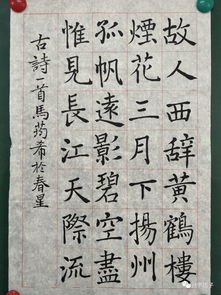 故人西辞黃鶴樓
煙花三月下揚州
孤帆遠影碧空盡
惟見長江天際流
古詩一首馬藹希於春星